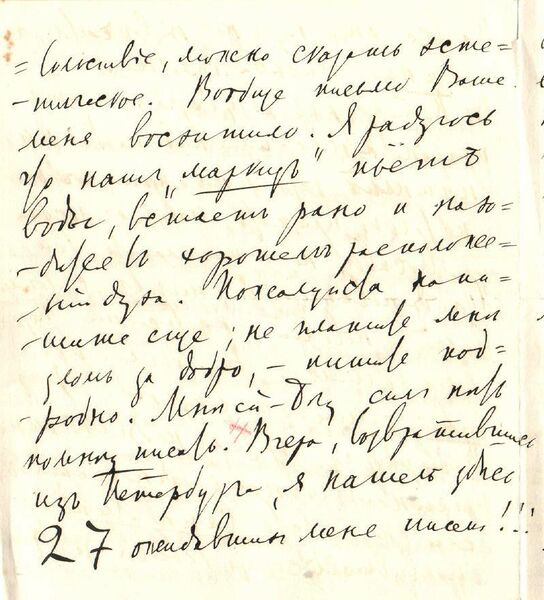 =вольствіе, можно сказать эсте=
-тическое. Вообще письмо Ваше
меня восхитило. Я радуюсь
что нашъ „маркизъ" пьётъ
воды, встаетъ рано и нахо=
-дится въ хорошемъ расположе=
-ніи духа. Пожалуйста напи=
-шите еще; не платите мнѣ
зломъ за добро, – пишите под=
-робно. Мнѣ ей-Богу силъ нѣтъ
помногу писать. Вчера, возвратившись
изъ Петербурга, я нашелъ здѣсь
27 ожидавшихъ меня писемъ!!!